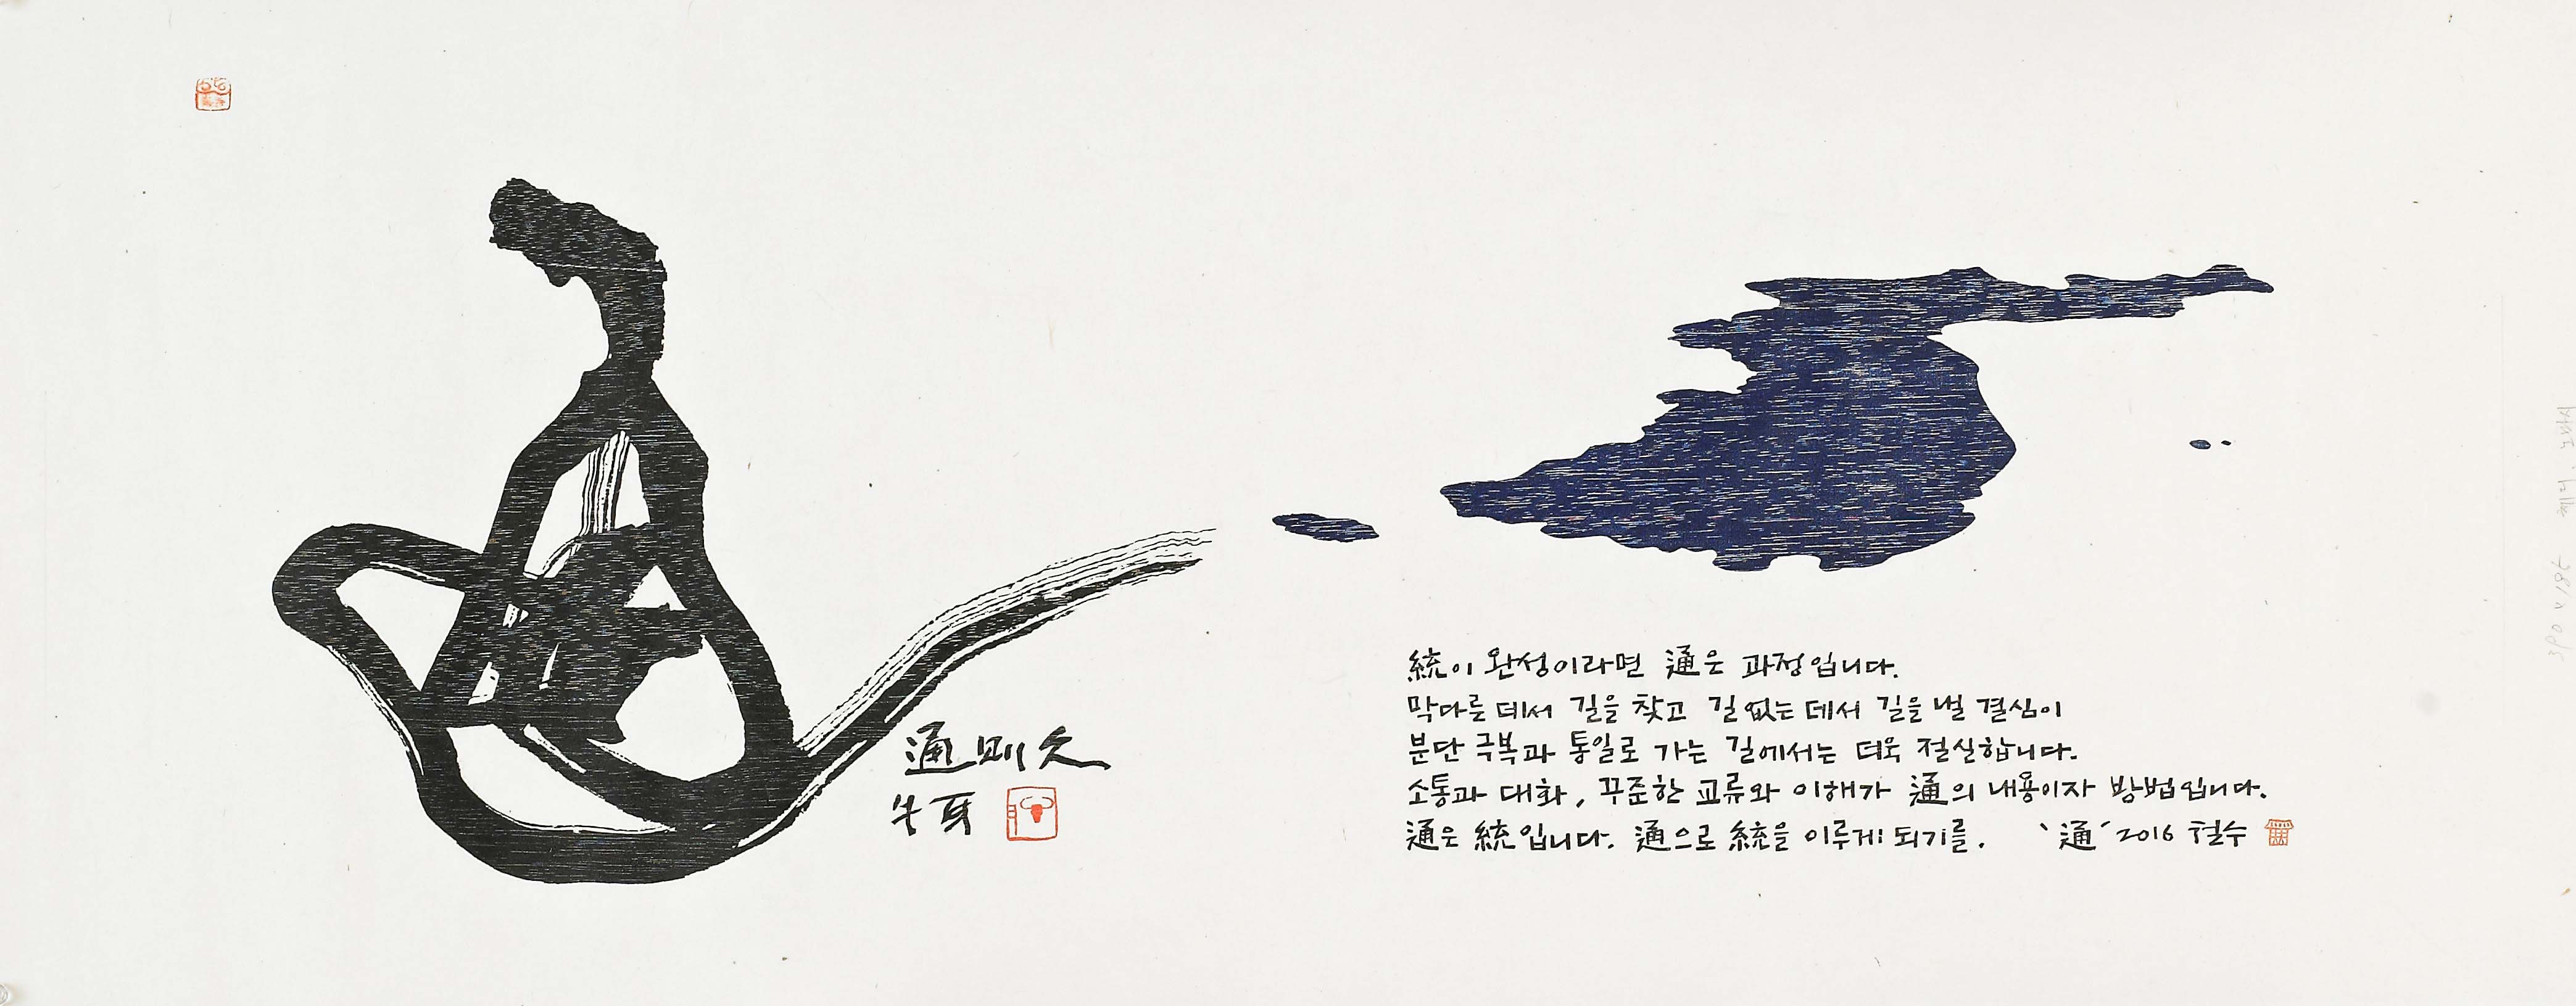 通
通則久
牛耳
統이 완성이라면 通은 과정입니다.
막다른 데서 길을 찾고 길 없는 데서 길을 낼 결심이
분단 극복과 통일로 가는 길에서는 더욱 절실합니다.
소통과 대화, 꾸준한 교류와 이해가 通의 내용이자 방법입니다.
通은 統입니다. 通으로 統을 이루게 되기를. '通' 2016 철수